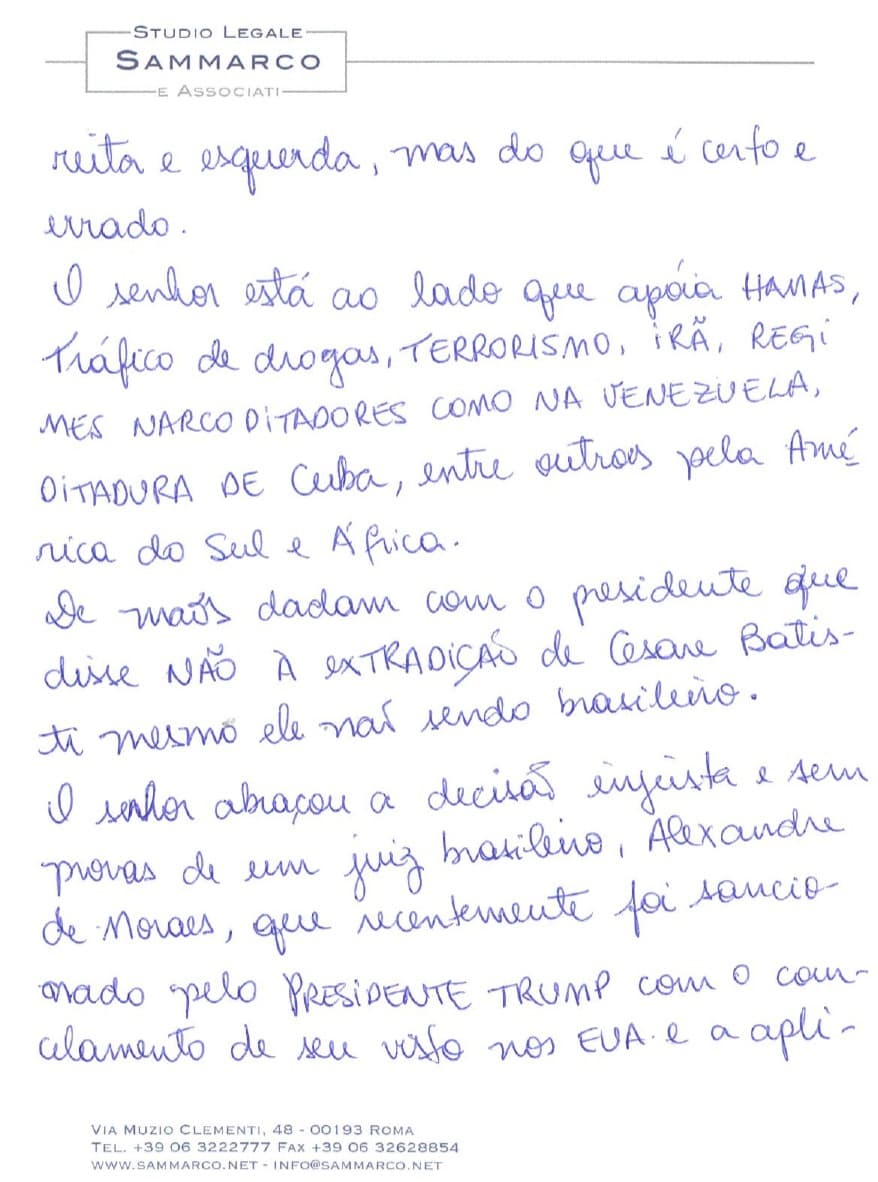 STUDIO LEGALE
SAMMARCO
E ASSOCIATI
reita e esquerda, mas do que é certo e
errado.
O senhor está ao lado que apóia HAMAS,
Tráfico de drogas, TERRORISMO, IRÃ, REGI
MES NARCO DITADORES COMO NA VENEZUELA,
DITADURA DE Cuba, entre outros pela Amé
rica do Sul e África.
De maõs dadam com o presidente que
disse NÃO À EXTRADIÇÃO de Cesare Batis-
ti mesmo ele não sendo brasileiro.
O senhor abraçou a decisão injusta e sem
provas de um juiz brasileiro, Alexandre
de Moraes, que recentemente foi sancio-
nado pelo PRESIDENTE TRUMP com o can-
celamento de seu visto nos EUA e a apli-
VIA MUZIO CLEMENTI, 48 - 00193 ROMA
TEL. +39 06 3222777 FAX +39 06 32628854
WWW.SAMMARCO.NET - INFO@SAMMARCO.NET